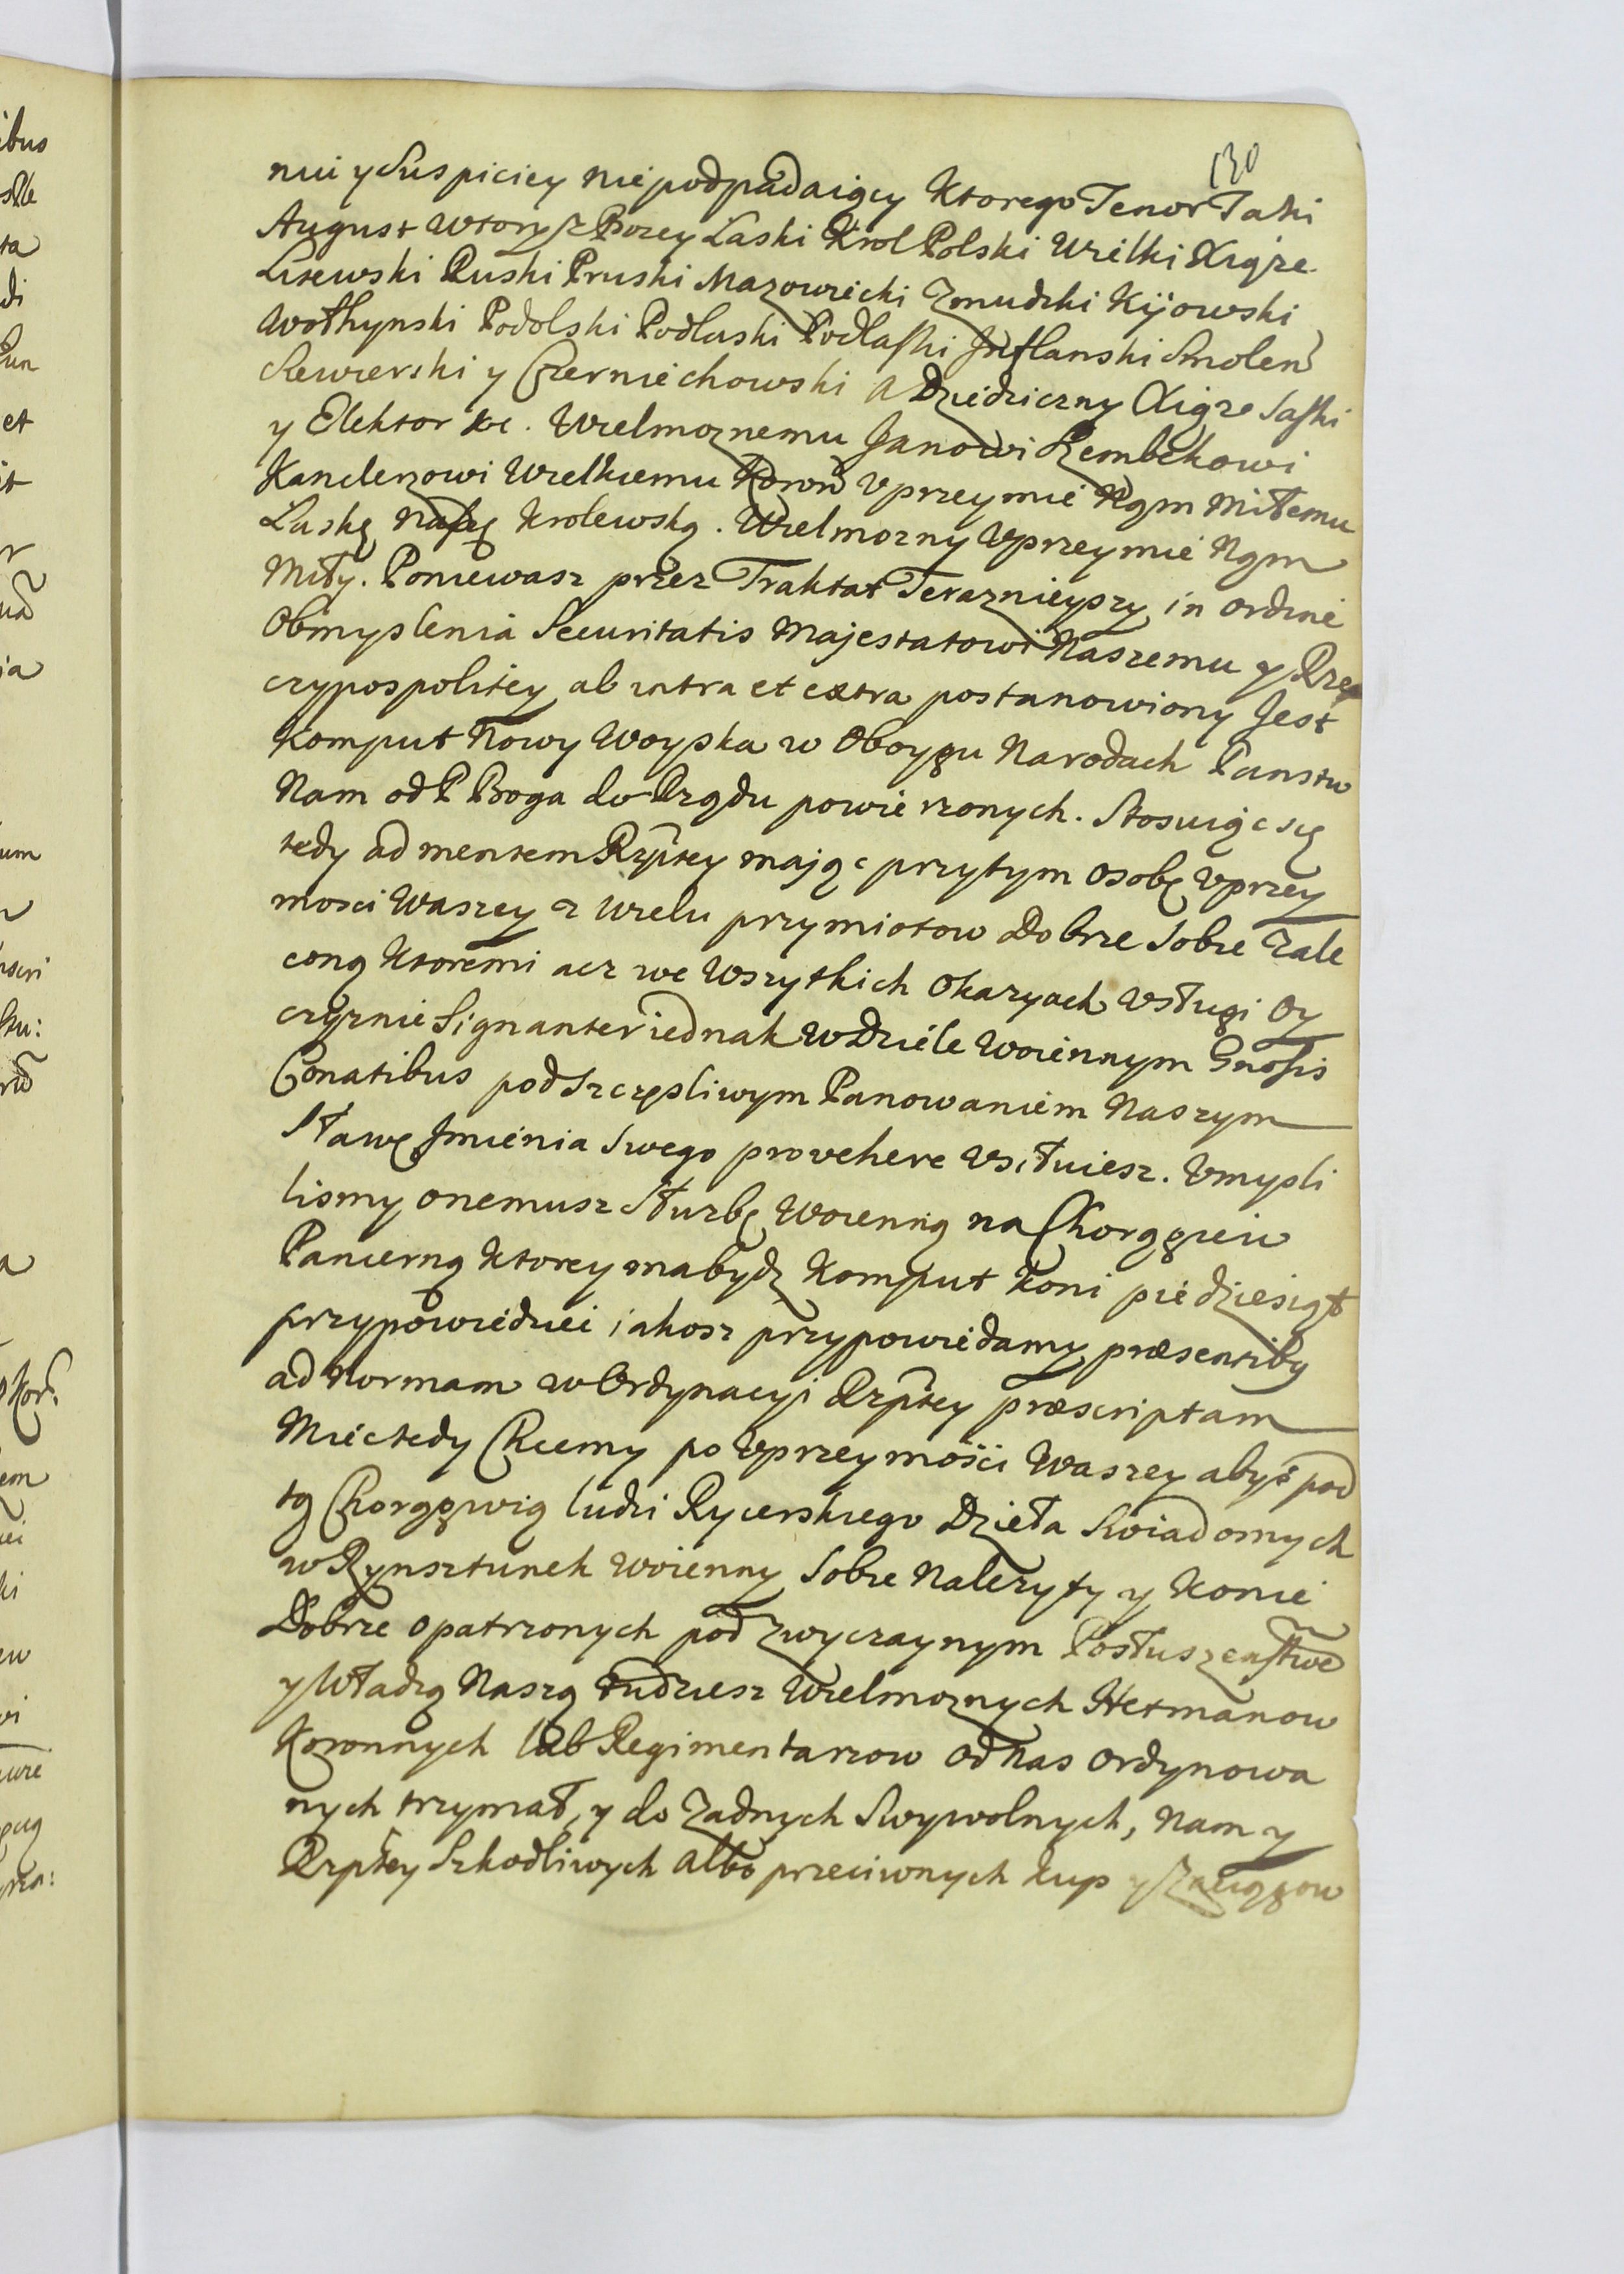 130
nui y Suspiciey nie podpadaiący Ktorego Tenor Taki
August Wtory z Bozey Laski Krol Polski Wielki Xiąże
Litewski Ruski Pruski Mazowiecki Zmudzki Kijowski
Wołhynski Podolski Podluski Podlaski Inflanski Smolen
Siewierski y Czerniechowski A Dziedziczny Xiąze Saski
y Elektor &c. Wielmoznemu Janowi Szembekowi
Kanclerzowi Wielkiemu Koron Vprzeymie Nąm Miłemu
Laskę Naszę Krolewską. Wielmozny Vprzeymie Nąm
Miły. Poniewasz przez Traktat Teraznieyszy in ordine
Obmyslenia Securitatis Majestatowi Naszemu y Rze
czypospolitey ab intra et extra postanowiony Jest
Komput Nowy Woyska w Oboygu Narodach Panstw
Nam od P Boga do Rządu powierzonych. Stosuiąc się
tedy ad mentem Rzptey mając przytym Osobę Vprzey
mosci Waszey z wielu przymiotow Dobrze Sobie Zale
coną Ktoremi acz we Wszytkich Okazyach Vsługi Oy
czyznie Signanter iednak w Dziele Woiennym Gnosis
Conatibus pod Szczęsliwym Panowaniem Naszym
Sławę Jmienia Swego provehere Vsiłuiesz. Vmysli
lismy onemusz Służbę Woienną na Chorągiew
Pancerną Ktorey ma bydz Komput Koni piedziesiąt
przypowiedziec iakosz przypowiedamy præsentiby
ad Normam w Ordynacyi Rzptey præscriptam
Miec tedy Chcemy po Vprzeymości Waszey abyś pod
tą Chorągwią ludzi Rycerskiego Dzieła Swiadomych
w Rynsztunek Woienny Sobie Nalezyty y Konie
Dobrze opatrzonych pod zwyczaynym Posłuszeństwe
y Władzą Naszą tudziesz Wielmoznych Hetmanow
Koronnych lub Regimentarzow od Nas Ordynowa
nych trzymał, y do Zadnych Swywolnych, Nam y
Rzptey Szkodliwych albo przeciwnych kup y Zaciągow